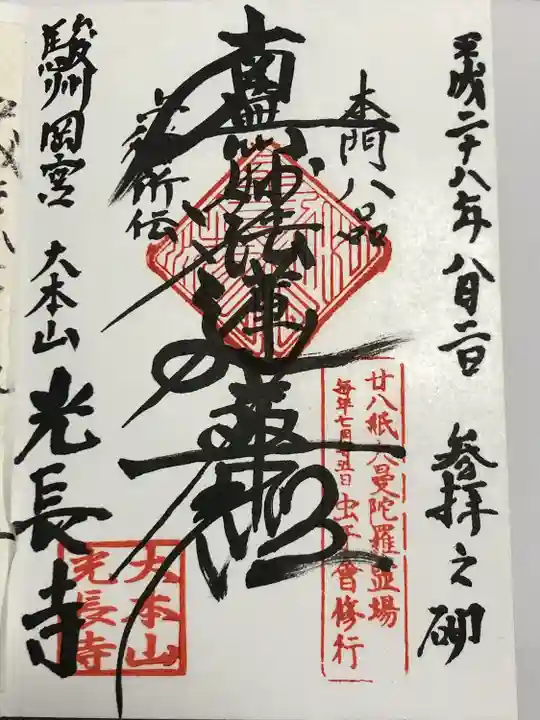 平成二十八年八月二日 参拝之砌
本門八品
南無妙法蓮華経
上行所伝
駿州岡宮 大本山 光長寺
廿八紙大曼陀羅霊場
毎年七月廿五日 虫干会修行
大本山
光長寺